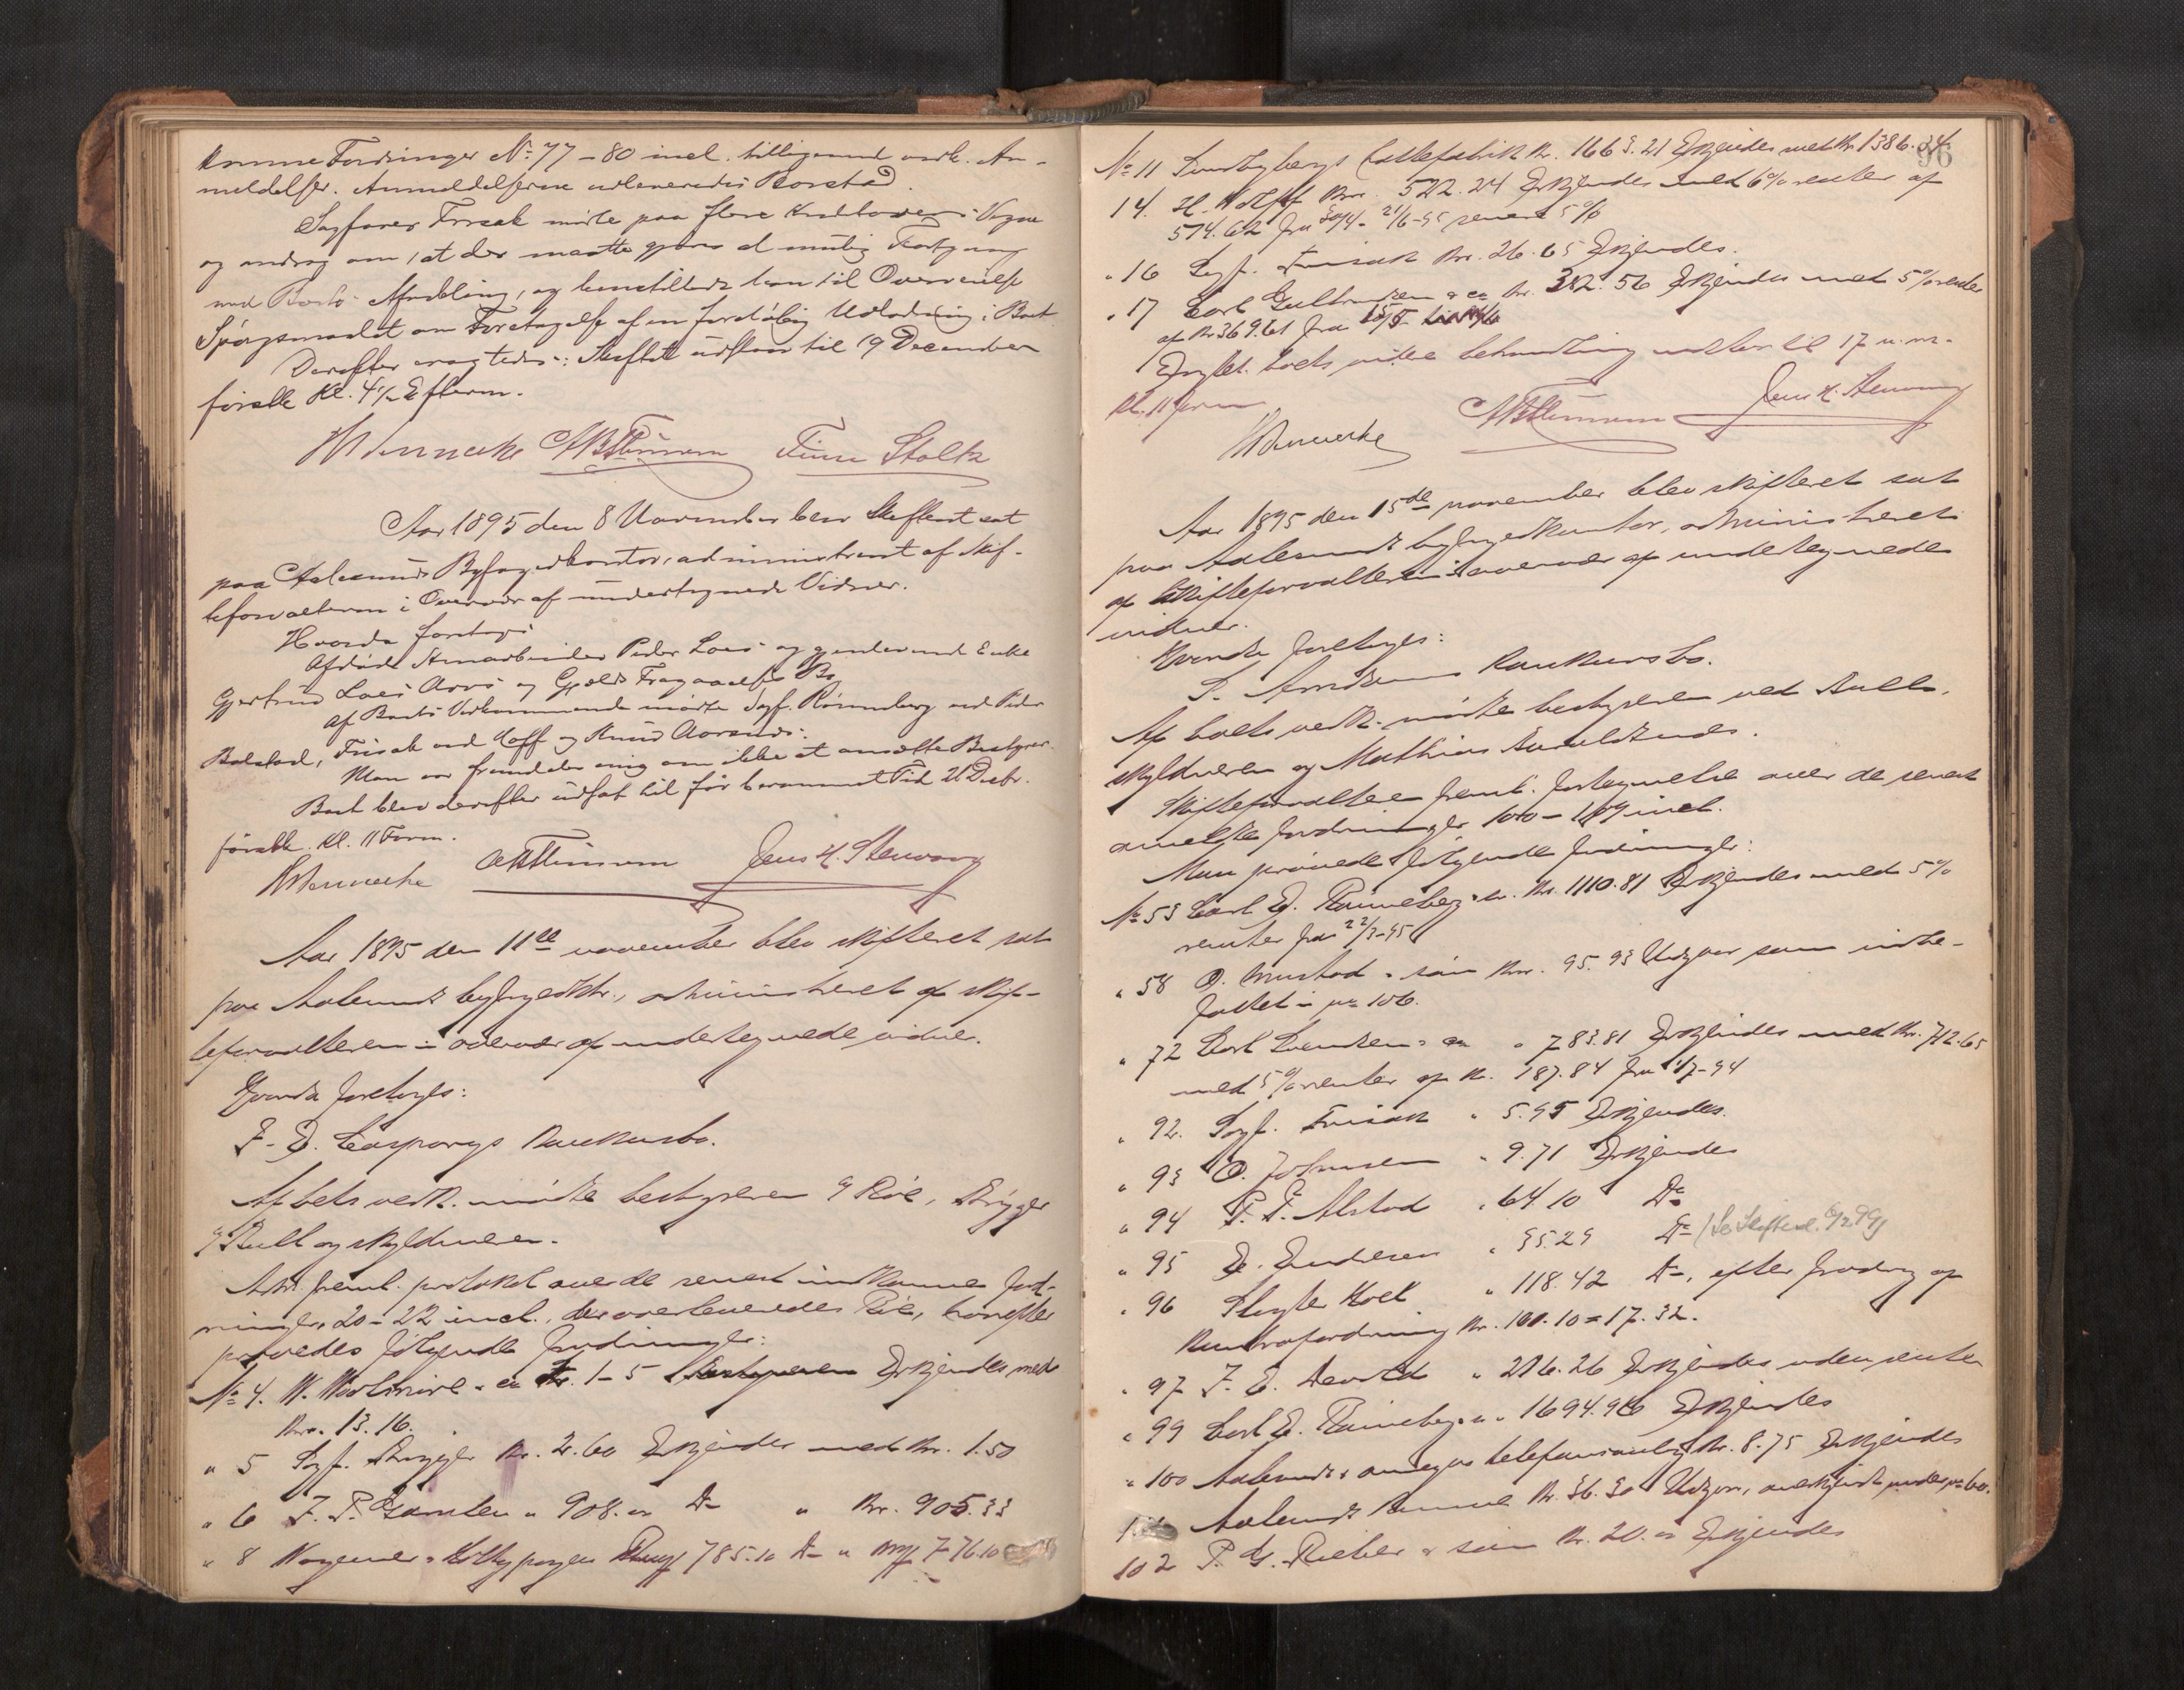 komne Fordringer No. 77 - 80 incl. tilligemed vedk. An-
meldelser. Anmeldelserne udleveredes Borstad.
Sagfører Frisak mødte paa flere Kreditorers Vegne
og androg om, at der maatte gjøres al mulig Fortgang
med Boets Afvikling, og henstillede han til Overveielse
Spørgsmaalet om Foretagelse af en foreløbig Udlodning i Boet
Derefter eragtedes: Skiftet udstaar til 19 December
førstk. Kl. 4 ½ Efterm.
Wennecke Finn Stoltz
Aar 1895 den 8 November blev Skifteret sat
paa Aalesunds Byfogedkontor, administreret af Skif-
teforvalteren i Overvær af undertegnede Vidner.
Hvorda foretoges
Afdøde Stenarbeider Peder Loes og gjenlevende Enke
Gjertrud Loes Arvs og Gjælds Fragaaelses Bo
Af Boets Vedkommende mødte Sagf. Rønneberg ved Peder
Bolstad, Frisak ved Hoff og Knud Aarsnes.
Man var fremdeles enig om ikke at ansætte Bestyrer.
Boet blev derefter udsat til før berammet Tid 21 Decbr.
førstk. Kl. 11 Form.
Wennecke Jens H. Stenvaag
Aar 1895 den 11te november blev skifteret sat
paa Aalesunds byfogedktr., administreret af skif-
teforvalteren i overvær af undertegnede vidner.
Hvorda foretoges:
F. D. Casparys konkursbo.
Af bets vedk. mødte bestyreren v/ Röe, Krüger
v/ Bull og skyldneren.
Adm. freml. protokol over de senest indkomne ford-
ringer, 20 - 22 incl., der overleveredes Röe, hvorefter
prøvedes følgende fordringer:
No. 4. W. & co kr. 1-5 Erkjendes med
Kr. 13.16.
" 5 Sagf. Krüger Kr. 2.60 Erkjendes med Kr. 1.50
" 6 J. P. " 908. " Do " Kr. 905.33
" 8 785.10 Do " 776.10
96
No. 11 kr. 1663.21 Erkjendes med Kr. 1386.34.
14. H. Wolff Kr. 522.24 Erkjendes med 6% renter af
514.62 fra 30/4 - 21/6-95 senere 5%
" 16 Sagf. Frisak Kr. 26.65 Erkjendes.
" 17 Carl Gulbransen & co kr. 382.56 Erkjendes med 5% renter
af Kr 369.61 fra
boets videre behandling udsættes til 17 n. m.
kl. 11 form
Wennecke Jens H. Stenvaag
Aar 1895 den 15de november blev skifteret sat
paa Aalesunds byfogedkontor, administreret
af skifteforvalteren i overvær af undertegnede
vidner.
Hvorda foretoges:
S. Konkursbo.
Af boets vedk. mødte bestyreren ved Bull,
skyldneren og Mathias
Skifteforvalteren freml. fortegnelse over de senest
anmeldte fordringer 100 - 109 incl.
Man prøvede følgende fordringer:
No. 53 Carl E. Rønneberg & s. Kr. 1110.81 Erkjendes med 5%
renter fra 22/3-95
" 58 O. Mustad & søn Kr. 95.93 Udgaar som indbe-
fattet i no 106.
" 72 Carl Svendsen & co " 783.81 Erkjendes med Kr. 712.65
med 5% renter af Kr. 187.84 fra 1/7-94
" 92. Sagf. Frisak " 5.95 Erkjendes.
" 93 O. Johnsen " 9.71 Erkjendes
" 94 P. T. Alstad " 64.10 Do
" 95 E. " 35.29 Do
" 96 Slagter Hoel " 118.42 Do, efter fradrag af
kontrafordring kr. 101.10 = 17.32.
" 97 F. E. Devold " 216.26 Erkjendes uden renter
" 99 Carl E. Rønneberg & s. " 1694.96 Erkjendes
" 100 Aalesunds & omegns telefonanlæg Kr. 8.75 Erkjendes
Aalesunds kommune Kr. 36.30 Udgaar, anerkjendt under no 60.
102 P. G. Rieber & søn Kr. 20. " Erkjendes